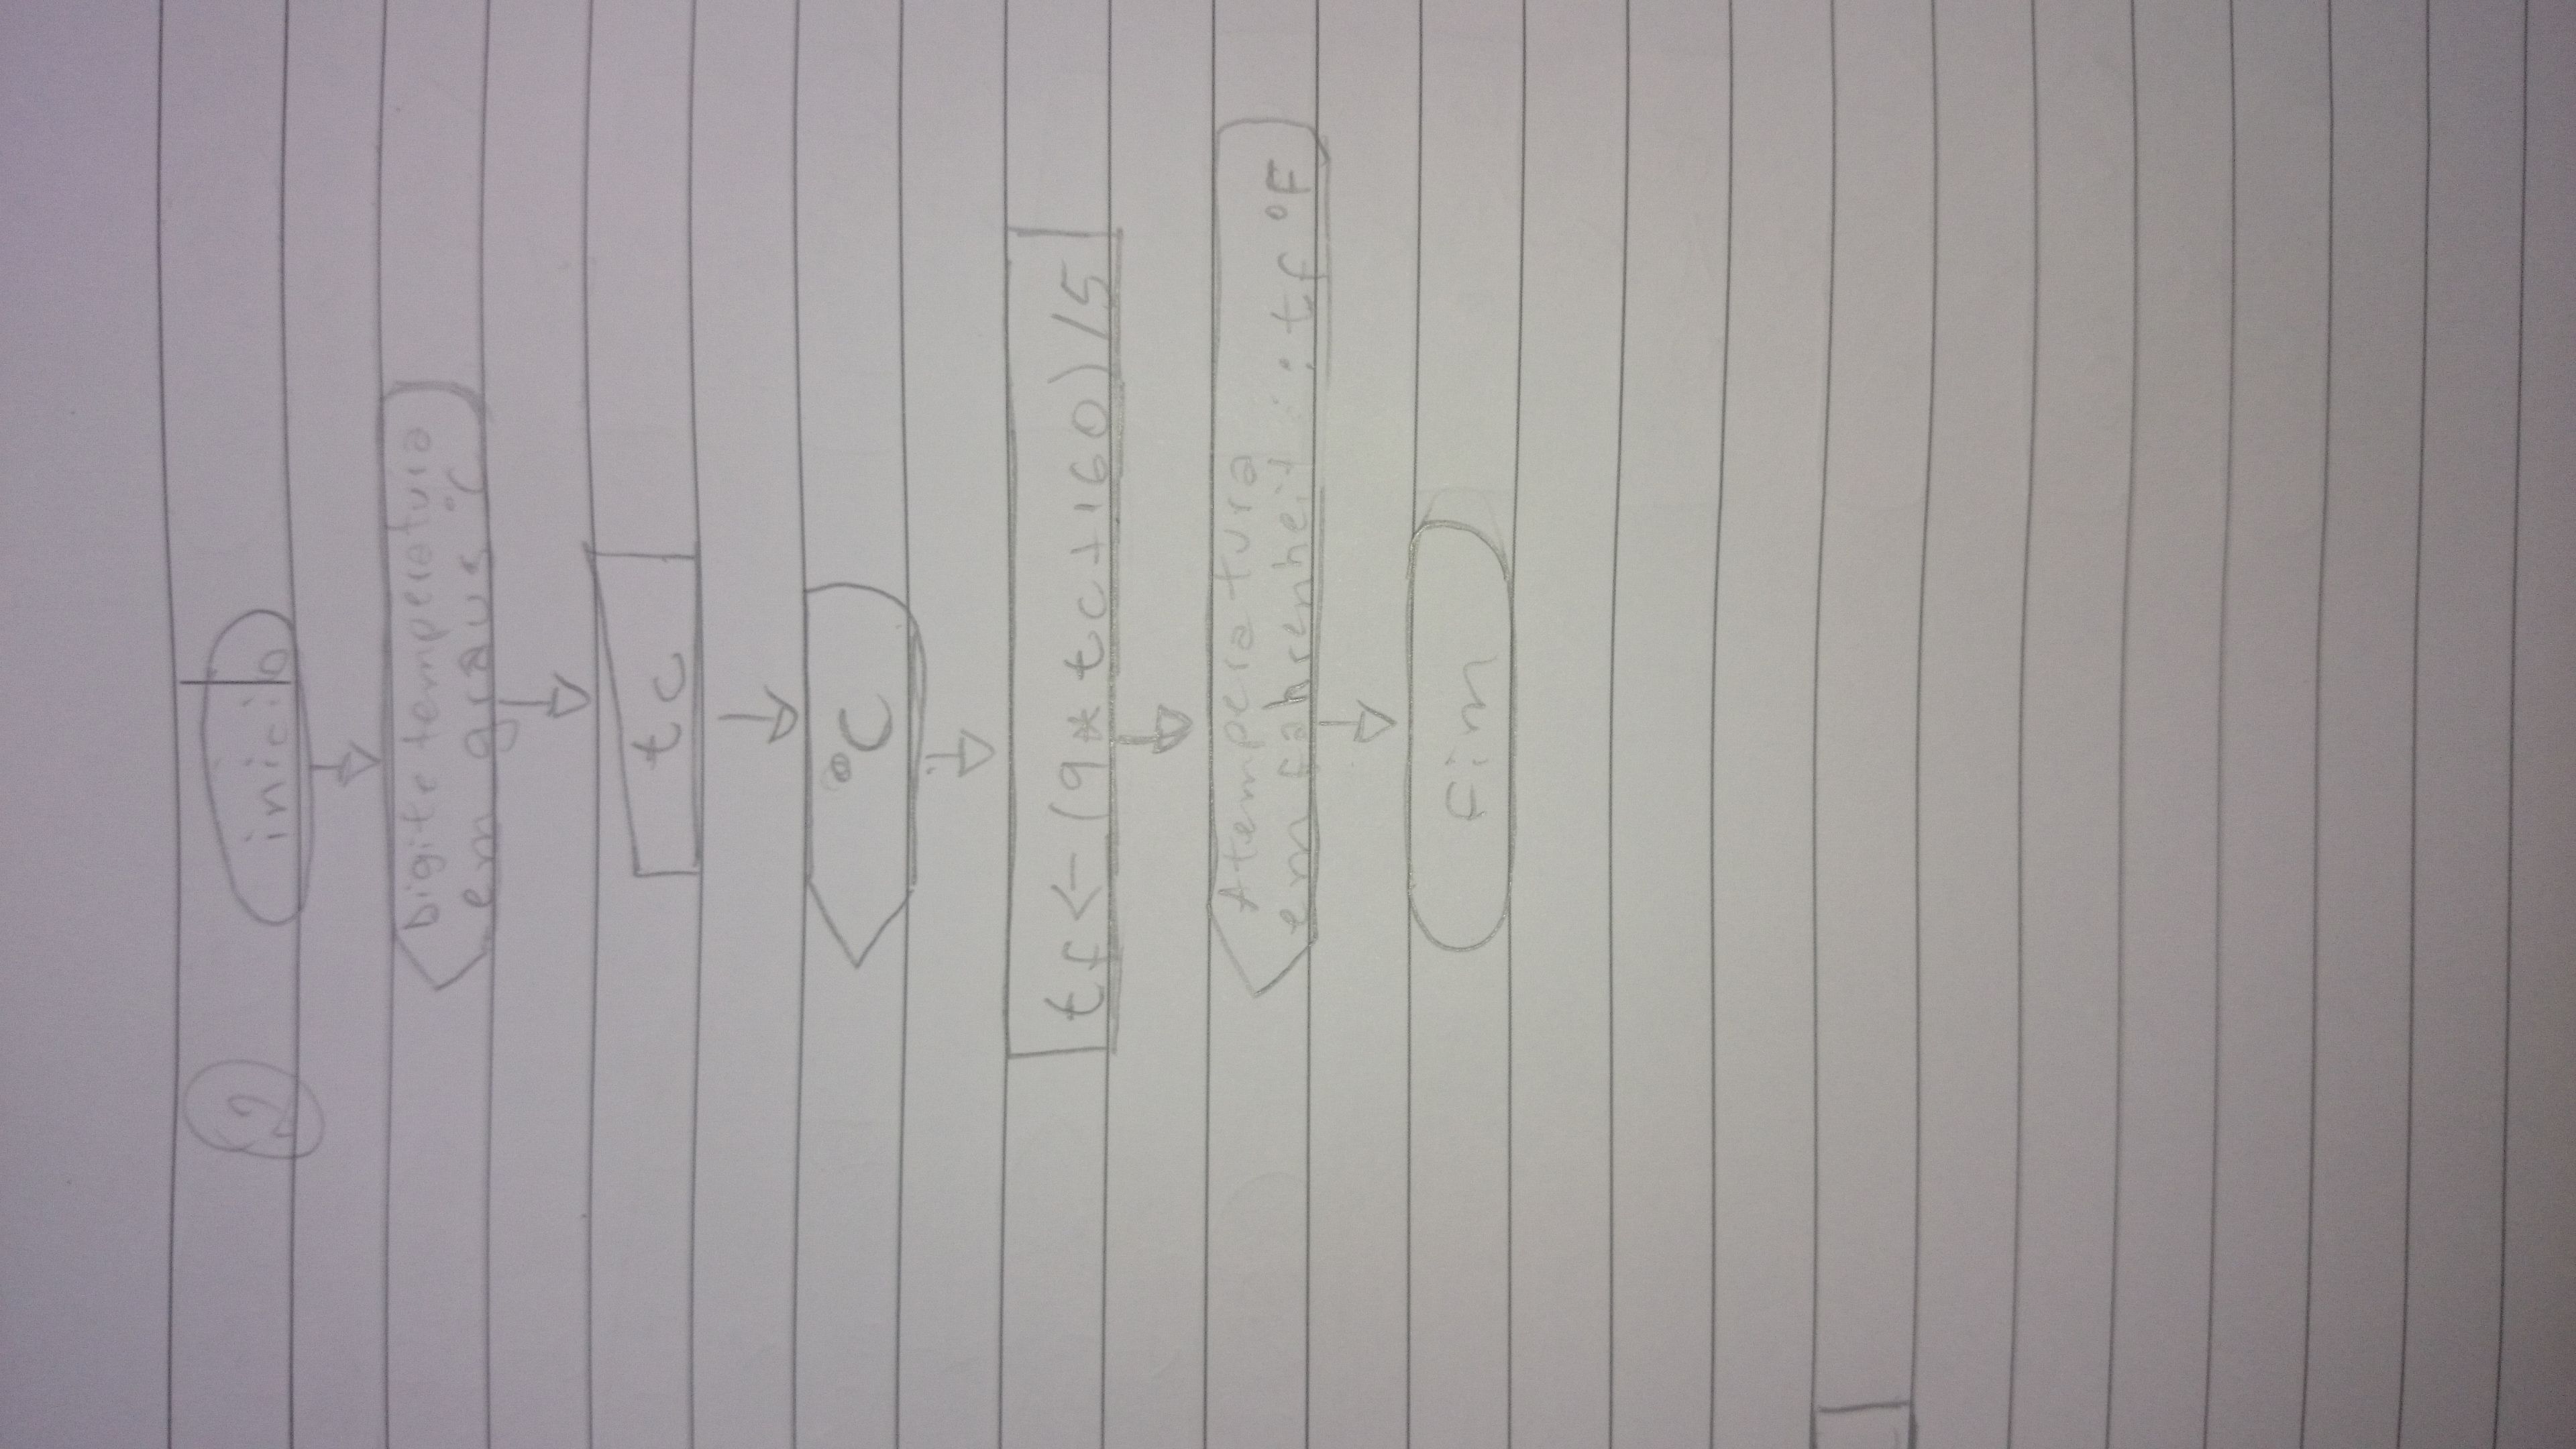 2
inicio
Digite temperatura
em graus °C
tc
°C
tf <- (9 * tc + 160) / 5
A temperatura
em Fahrenheit :: tf °F
Fim